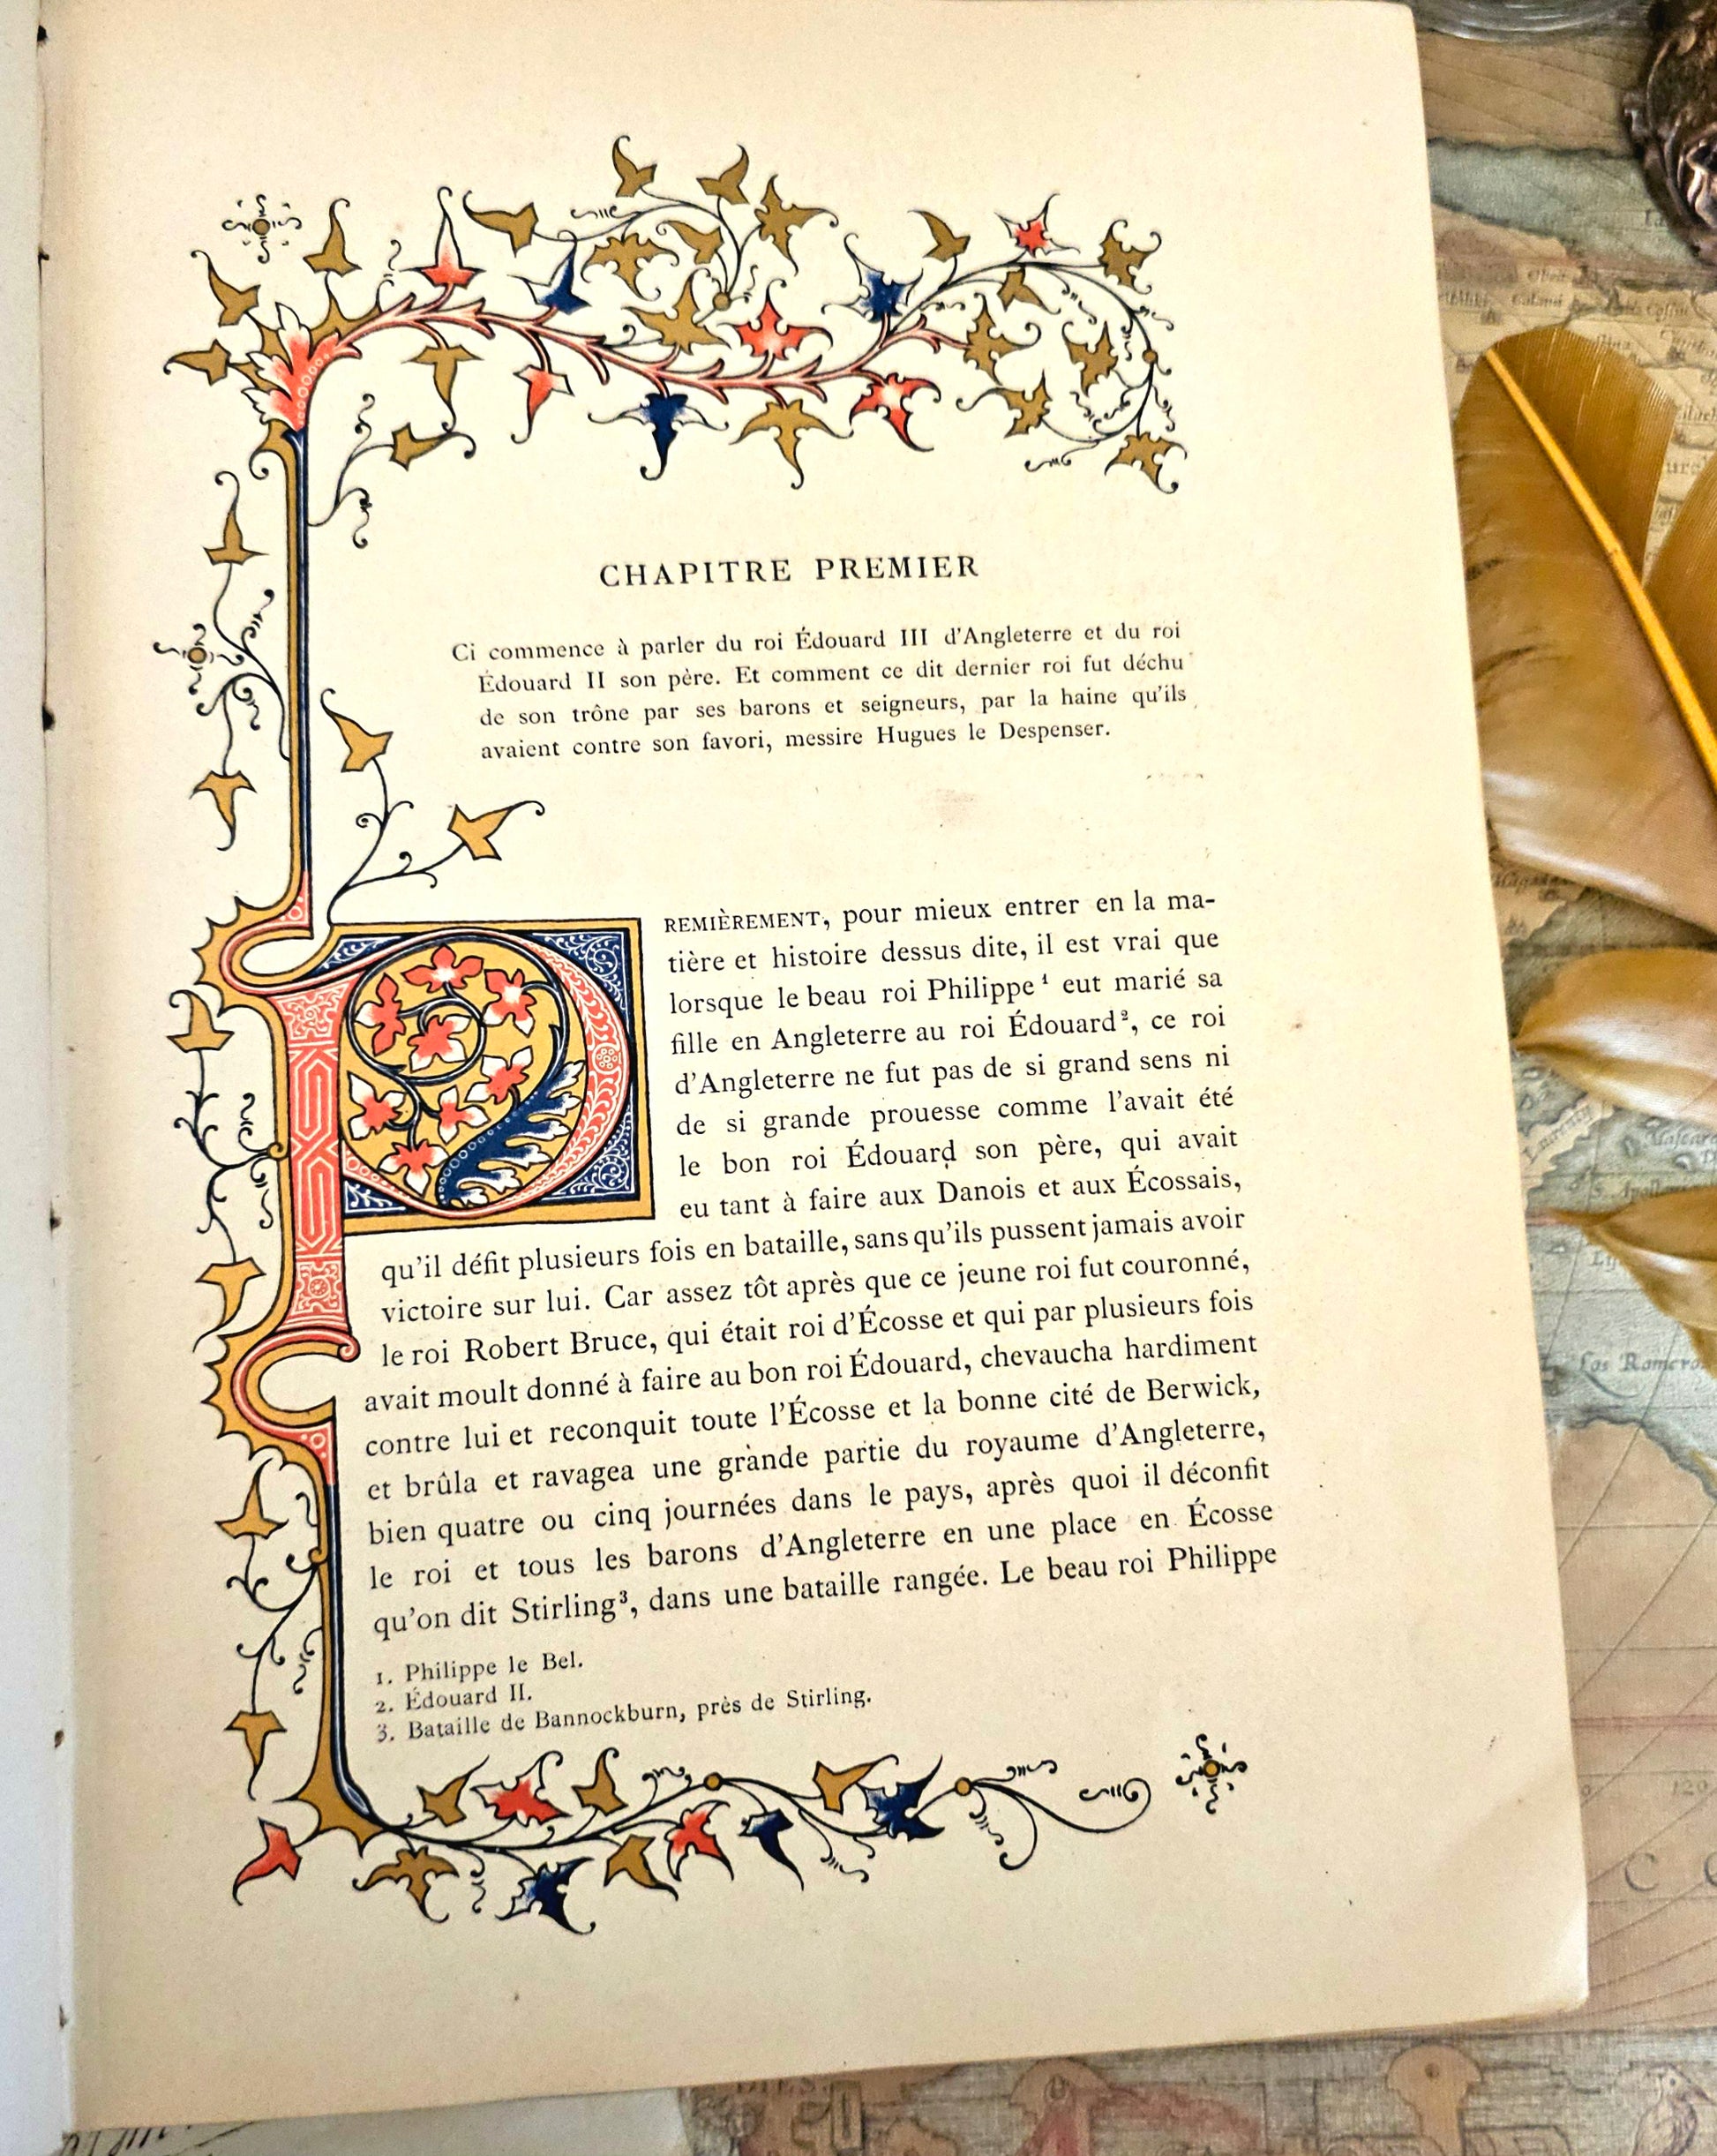 CHAPITRE PREMIER
Ci commence à parler du roi Édouard III d'Angleterre et du roi
Édouard II son père. Et comment ce dit dernier roi fut déchu
de son trône par ses barons et seigneurs, par la haine qu'ils
avaient contre son favori, messire Hugues le Despenser.
PREMIÈREMENT, pour mieux entrer en la ma-
tière et histoire dessus dite, il est vrai que
lorsque le beau roi Philippe¹ eut marié sa
fille en Angleterre au roi Édouard², ce roi
d'Angleterre ne fut pas de si grand sens ni
de si grande prouesse comme l'avait été
le bon roi Édouard son père, qui avait
eu tant à faire aux Danois et aux Écossais,
qu'il défit plusieurs fois en bataille, sans qu'ils pussent jamais avoir
victoire sur lui. Car assez tôt après que ce jeune roi fut couronné,
le roi Robert Bruce, qui était roi d'Écosse et qui par plusieurs fois
avait moult donné à faire au bon roi Édouard, chevaucha hardiment
contre lui et reconquit toute l'Écosse et la bonne cité de Berwick,
et brûla et ravagea une grande partie du royaume d'Angleterre,
bien quatre ou cinq journées dans le pays, après quoi il déconfit
le roi et tous les barons d'Angleterre en une place en Écosse
qu'on dit Stirling³, dans une bataille rangée. Le beau roi Philippe
1. Philippe le Bel.
2. Édouard II.
3. Bataille de Bannockburn, près de Stirling.
Los Romeros
120